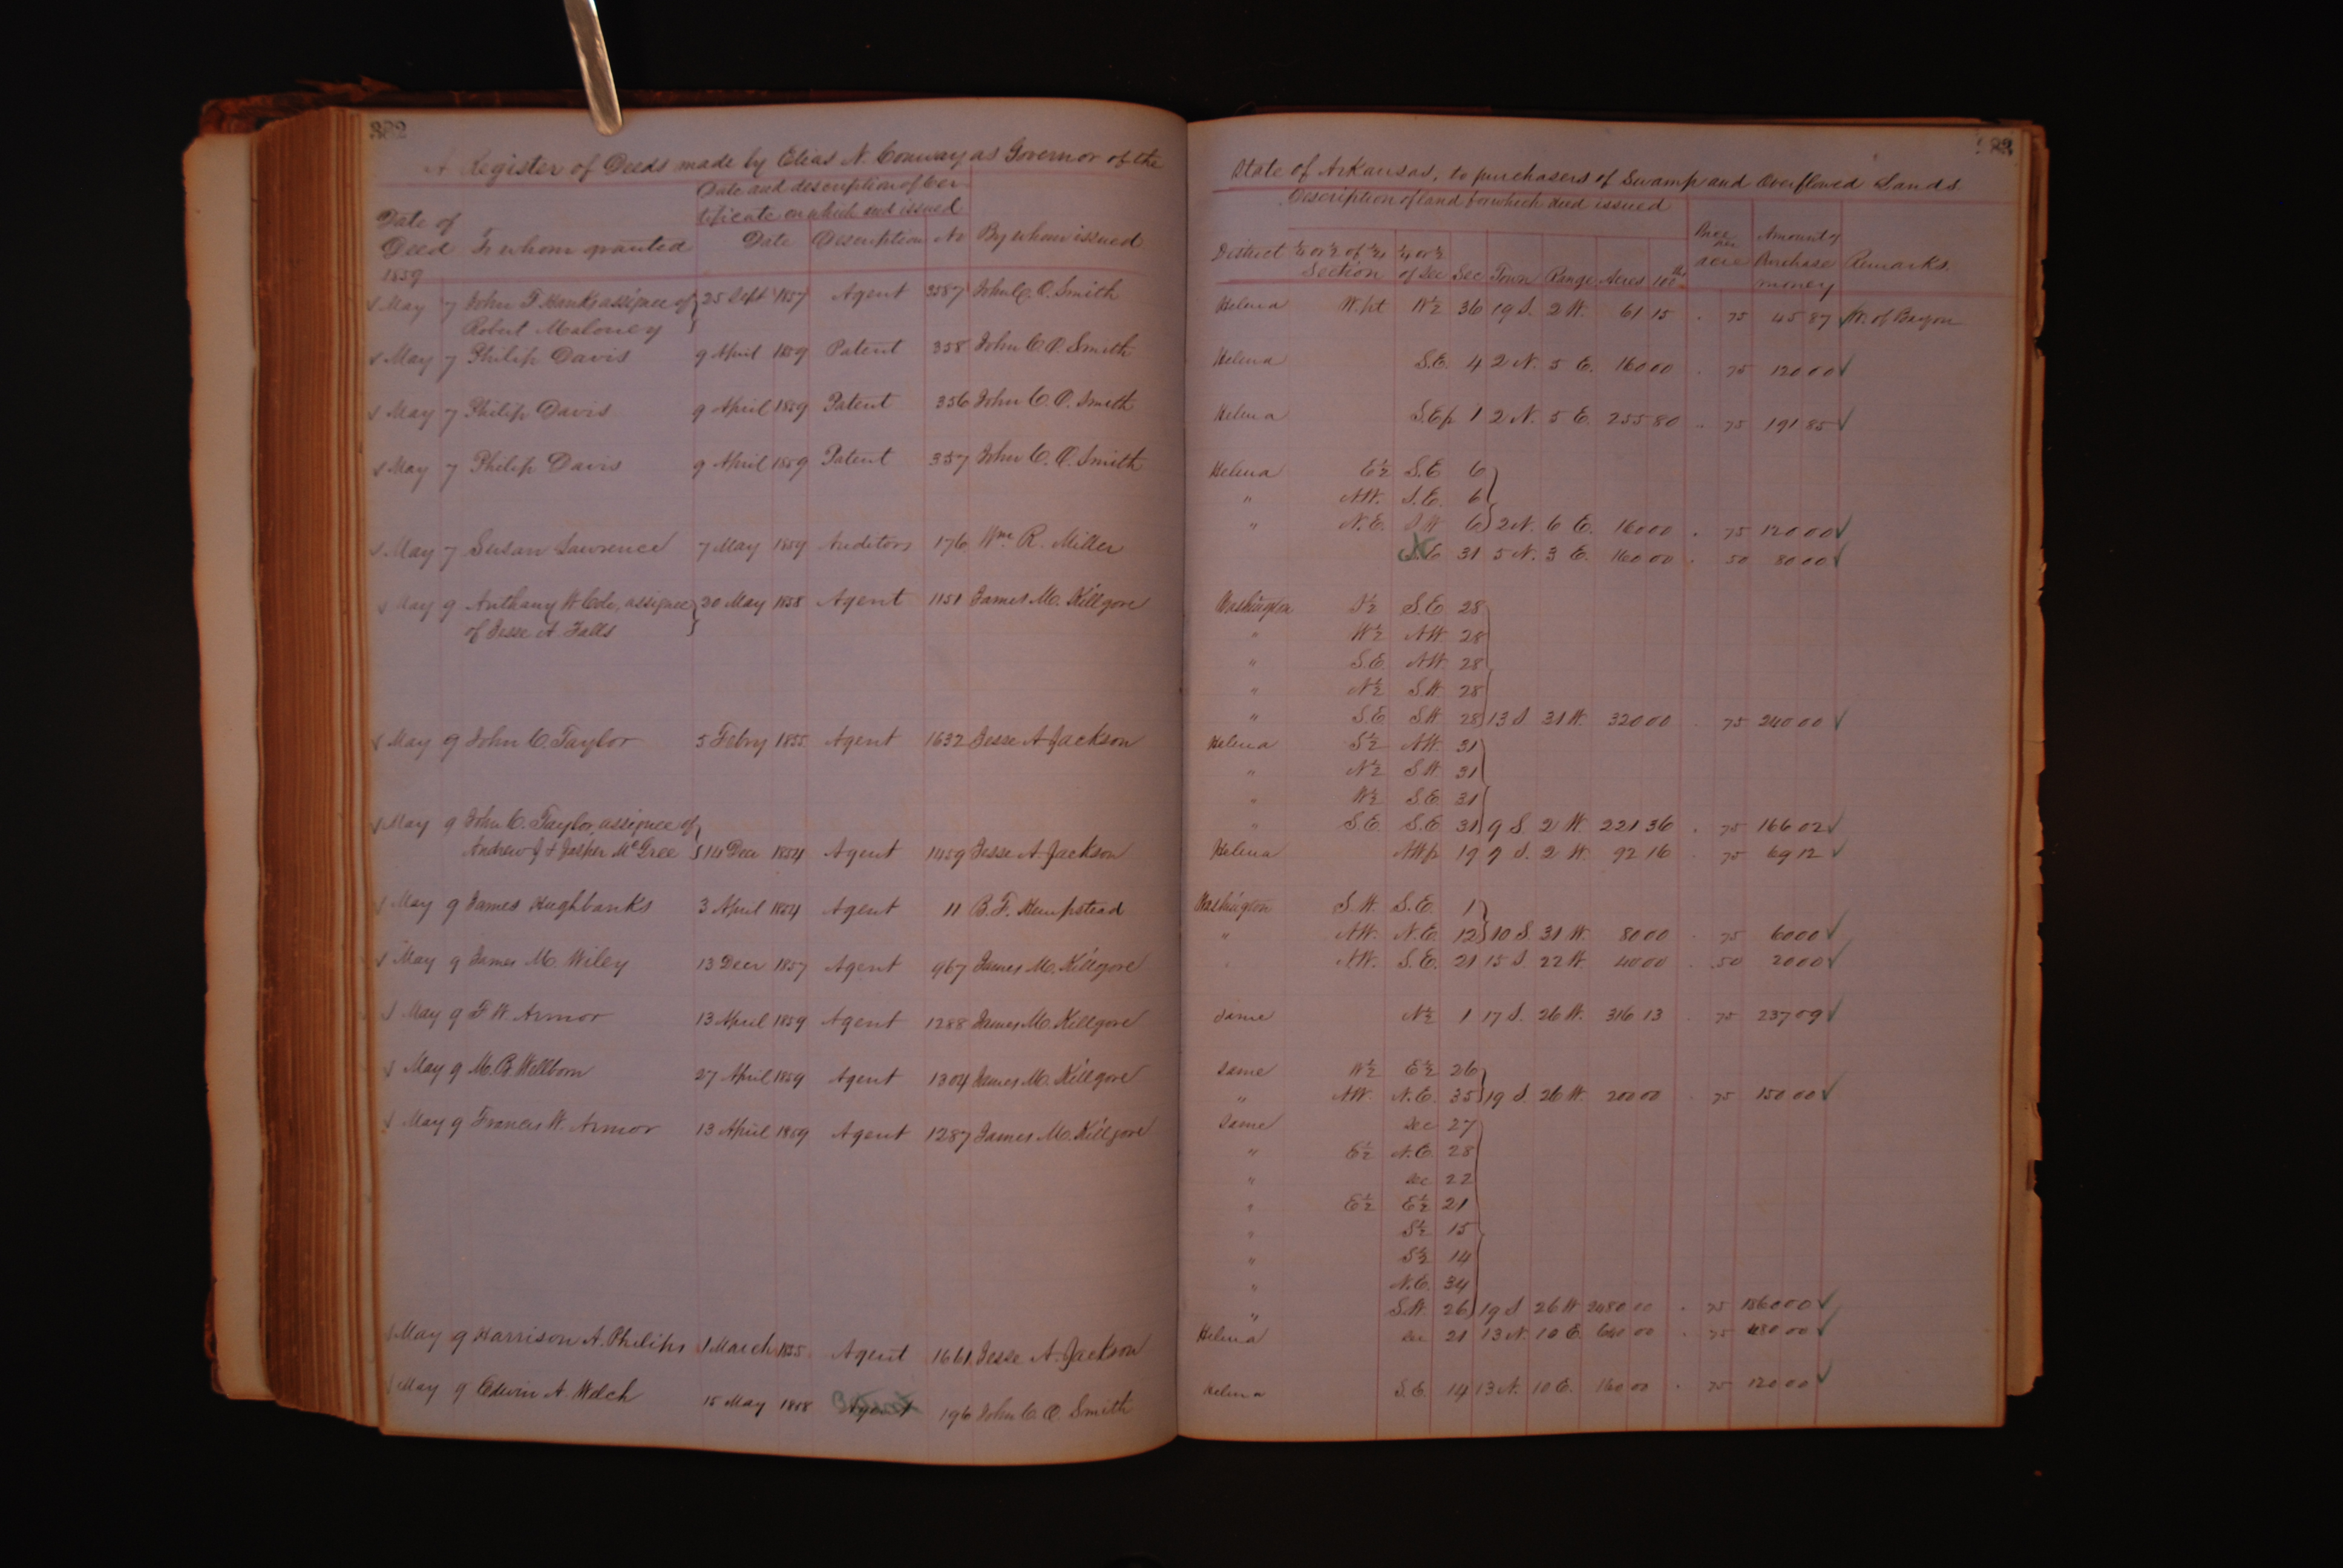 382
A Register of Deeds made by Elias N. Conway as Governor of the
Date and description of Cer
tificate on which deed issued
Date of
Deed To whom granted Date Description No By whom issued
1859
May 7 John T. Hanks assignee of 25 Sept 1857 Agent 3587 John C. O. Smith
Robert Maloney
May 7 Philip Davis 9 April 1859 Patent 358 John C. O. Smith
May 7 Philip Davis 9 April 1859 Patent 356 John C. O. Smith
May 7 Philip Davis 9 April 1859 Patent 357 John C. O. Smith
May 7 Susan Lawrence 7 May 1859 Auditors 176 Wm. R. Miller
May 9 Anthany W Cole, assignee 20 May 1858 Agent 1151 James M. Killgore
of Jesse A. Falls
May 9 John C. Taylor 5 Febry 1855 Agent 1632 Jesse A. Jackson
May 9 John C. Taylor, assignee of
Andrew J & Jasper McGree 14 Decr 1854 Agent 1459 Jesse A. Jackson
May 9 James Hughbanks 3 April 1854 Agent 11 B. F. Hempstead
May 9 James M. Wiley 13 Decr 1857 Agent 967 James M. Killgore
May 9 F W Armor 13 April 1859 Agent 1288 James M. Killgore
May 9 M. B. Wellborn 27 April 1859 Agent 1304 James M. Killgore
May 9 Francis W. Armor 13 April 1859 Agent 1287 James M. Killgore
May 9 Harrison A. Philips 1 March 1855 Agent 1661 Jesse A. Jackson
May 9 Edwin A. Welch 15 May 1858 Agent 196 John C. O. Smith
383
State of Arkansas, to purchasers of Swamp and Overflowed Lands
Description of land for which deed issued
Price per Amount of
District ¼ or ½ of ¼ ¼ or ½ acre Purchase Remarks
Section of Sec Sec Town Range Acres 100ths money
Helena W. pt W½ 36 19 S. 2 W. 61 15 . 75 45 87 W. of Bayou
Helena S.E. 4 2 N. 5 E. 160 00 . 75 120 00
Helena S.E p 1 2 N. 5 E. 255 80 . 75 191 85
Helena E½ S.E 6
" N.W. S.E. 6
" N.E. S.W 6 2 N. 6 E. 160 00 . 75 120 00
N.E 31 5 N. 3 E. 160 00 . 50 80 00
Washington S½ S.E 28
" W½ N.W. 28
" S.E. N.W. 28
" N½ S.W. 28
" S.E S.W 28 13 S. 31 W. 320 00 . 75 240 00
Helena S½ N.W. 31
" N½ S.W. 31
" W½ S.E. 31
" S.E. S.E. 31 9 S. 2 W. 221 36 . 75 166 02
Helena N.W p 19 9 S. 2 W. 92 16 . 75 69 12
Washington S.W. S.E. 1
" N.W. N.E. 12 10 S. 31 W. 80 00 . 75 60 00
" N.W. S.E. 21 15 S. 22 W. 40 00 . 50 20 00
Same N½ 1 17 S. 26 W. 316 13 . 75 237 09
Same W½ E½ 26
" N.W. N.E. 35 19 S. 26 W. 200 00 . 75 150 00
Same Sec 27
" E½ N.E. 28
" Sec 22
" E½ E½ 21
" S½ 15
" S½ 14
" N.E. 34
" S.W. 26 19 S 26 W 2480 00 . 75 1860 00
Helena Sec 21 13 N. 10 E. 640 00 . 75 480 00
Helena S.E. 14 13 N. 10 E. 160 00 . 75 120 00